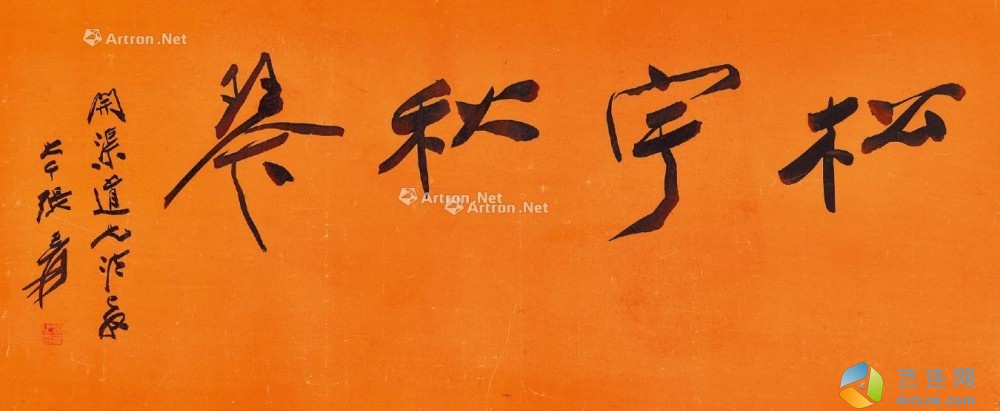 松宇秋琴
開渠道兄法教
大千張爰
Artron.Net
Artron.Net
Artron.Net
艺连网
ArtLnk.com